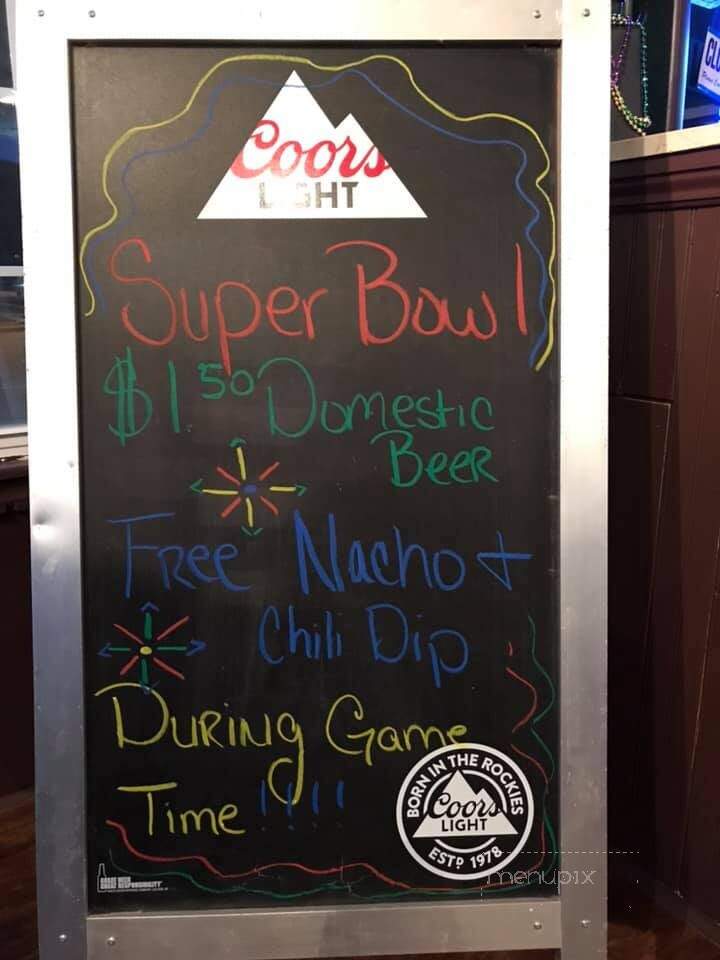 Coors
LIGHT
Super Bowl
$1.50 Domestic
Beer
Free Nacho +
Chili Dip
During Game
Time !!!!
BORN IN THE ROCKIES
Coors
LIGHT
ESTD 1978
GREAT BEER
GREAT RESPONSIBILITY
menupix